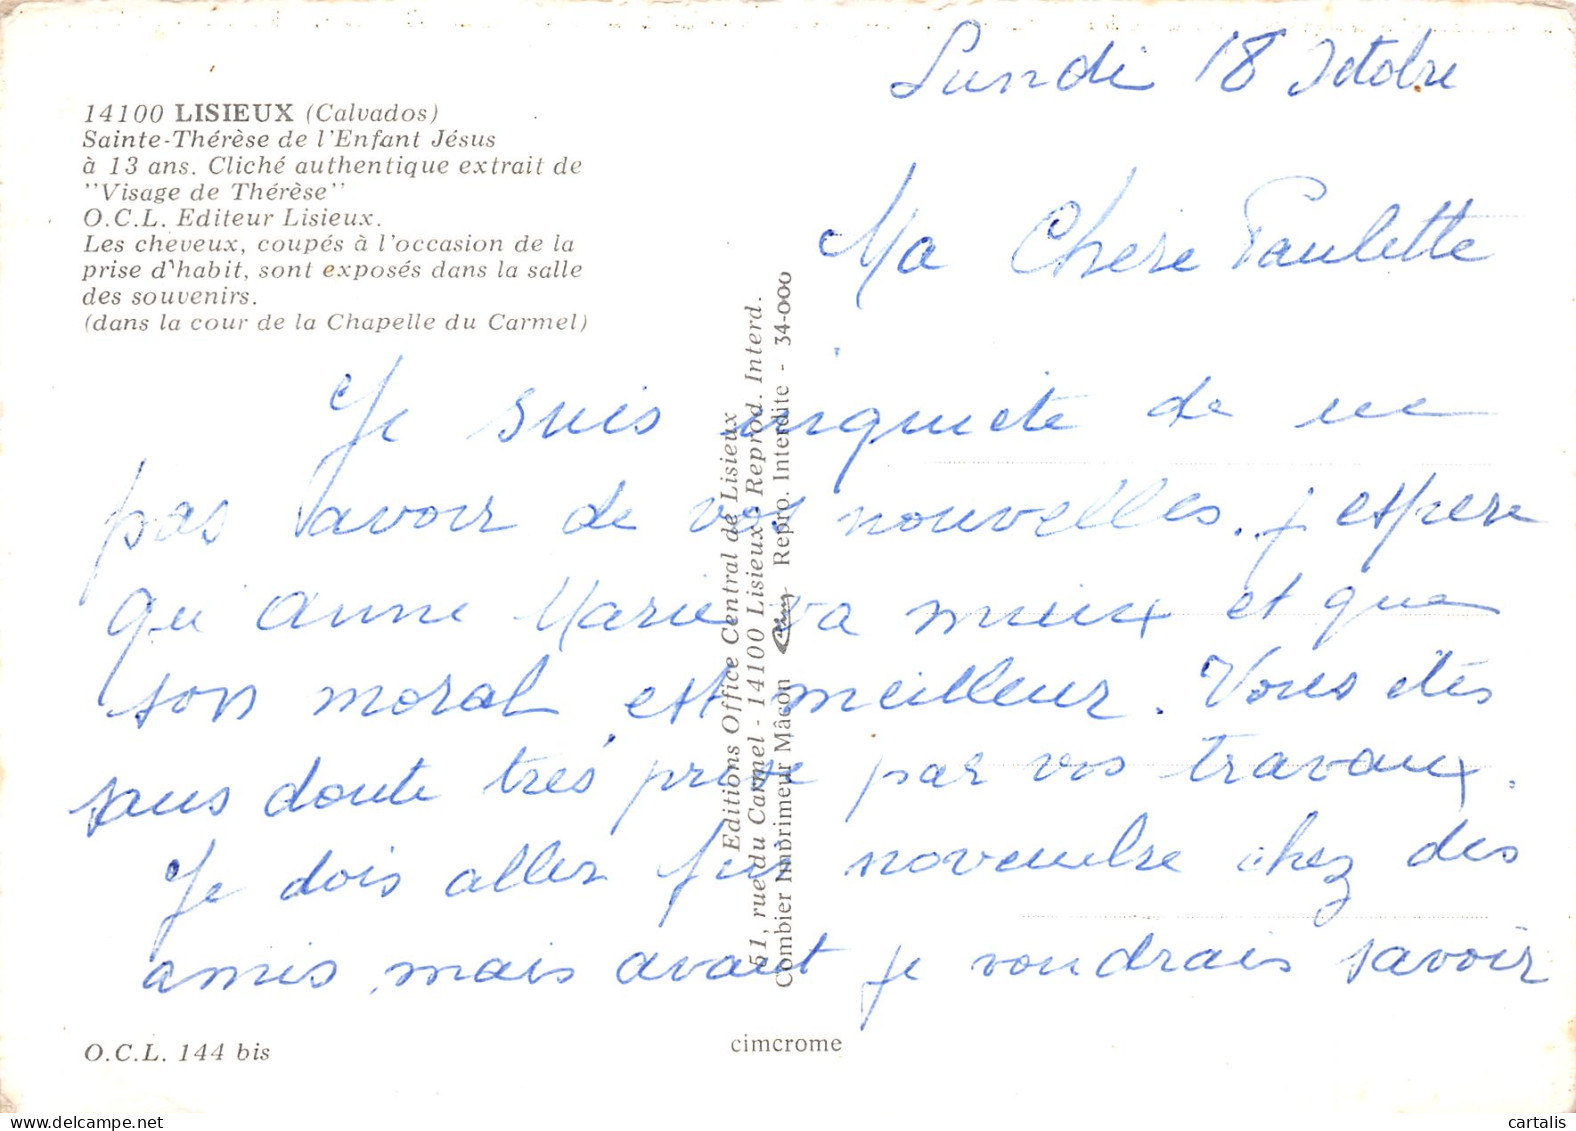 14100 LISIEUX (Calvados)
Sainte-Thérèse de l'Enfant Jésus
à 13 ans. Cliché authentique extrait de
"Visage de Thérèse"
O.C.L. Editeur Lisieux.
Les cheveux, coupés à l'occasion de la
prise d'habit, sont exposés dans la salle
des souvenirs.
(dans la cour de la Chapelle du Carmel)
Lundi 18 Octobre
Ma Chere Paulette
Je suis inquiete de ne
pas avoir de vos nouvelles. j espere
qu Anne Marie va mieux et que
son moral est meilleur. Vous etes
sans doute très prise par vos travaux.
Je dois aller fin novembre chez des
amis mais avant je voudrais savoir
Editions Office Central de Lisieux
51, rue du Carmel - 14100 Lisieux Reprod. Interd.
Combier Imprimeur Mâcon Repro. Interdite - 34-000
O.C.L. 144 bis
cimcrome
cartalis